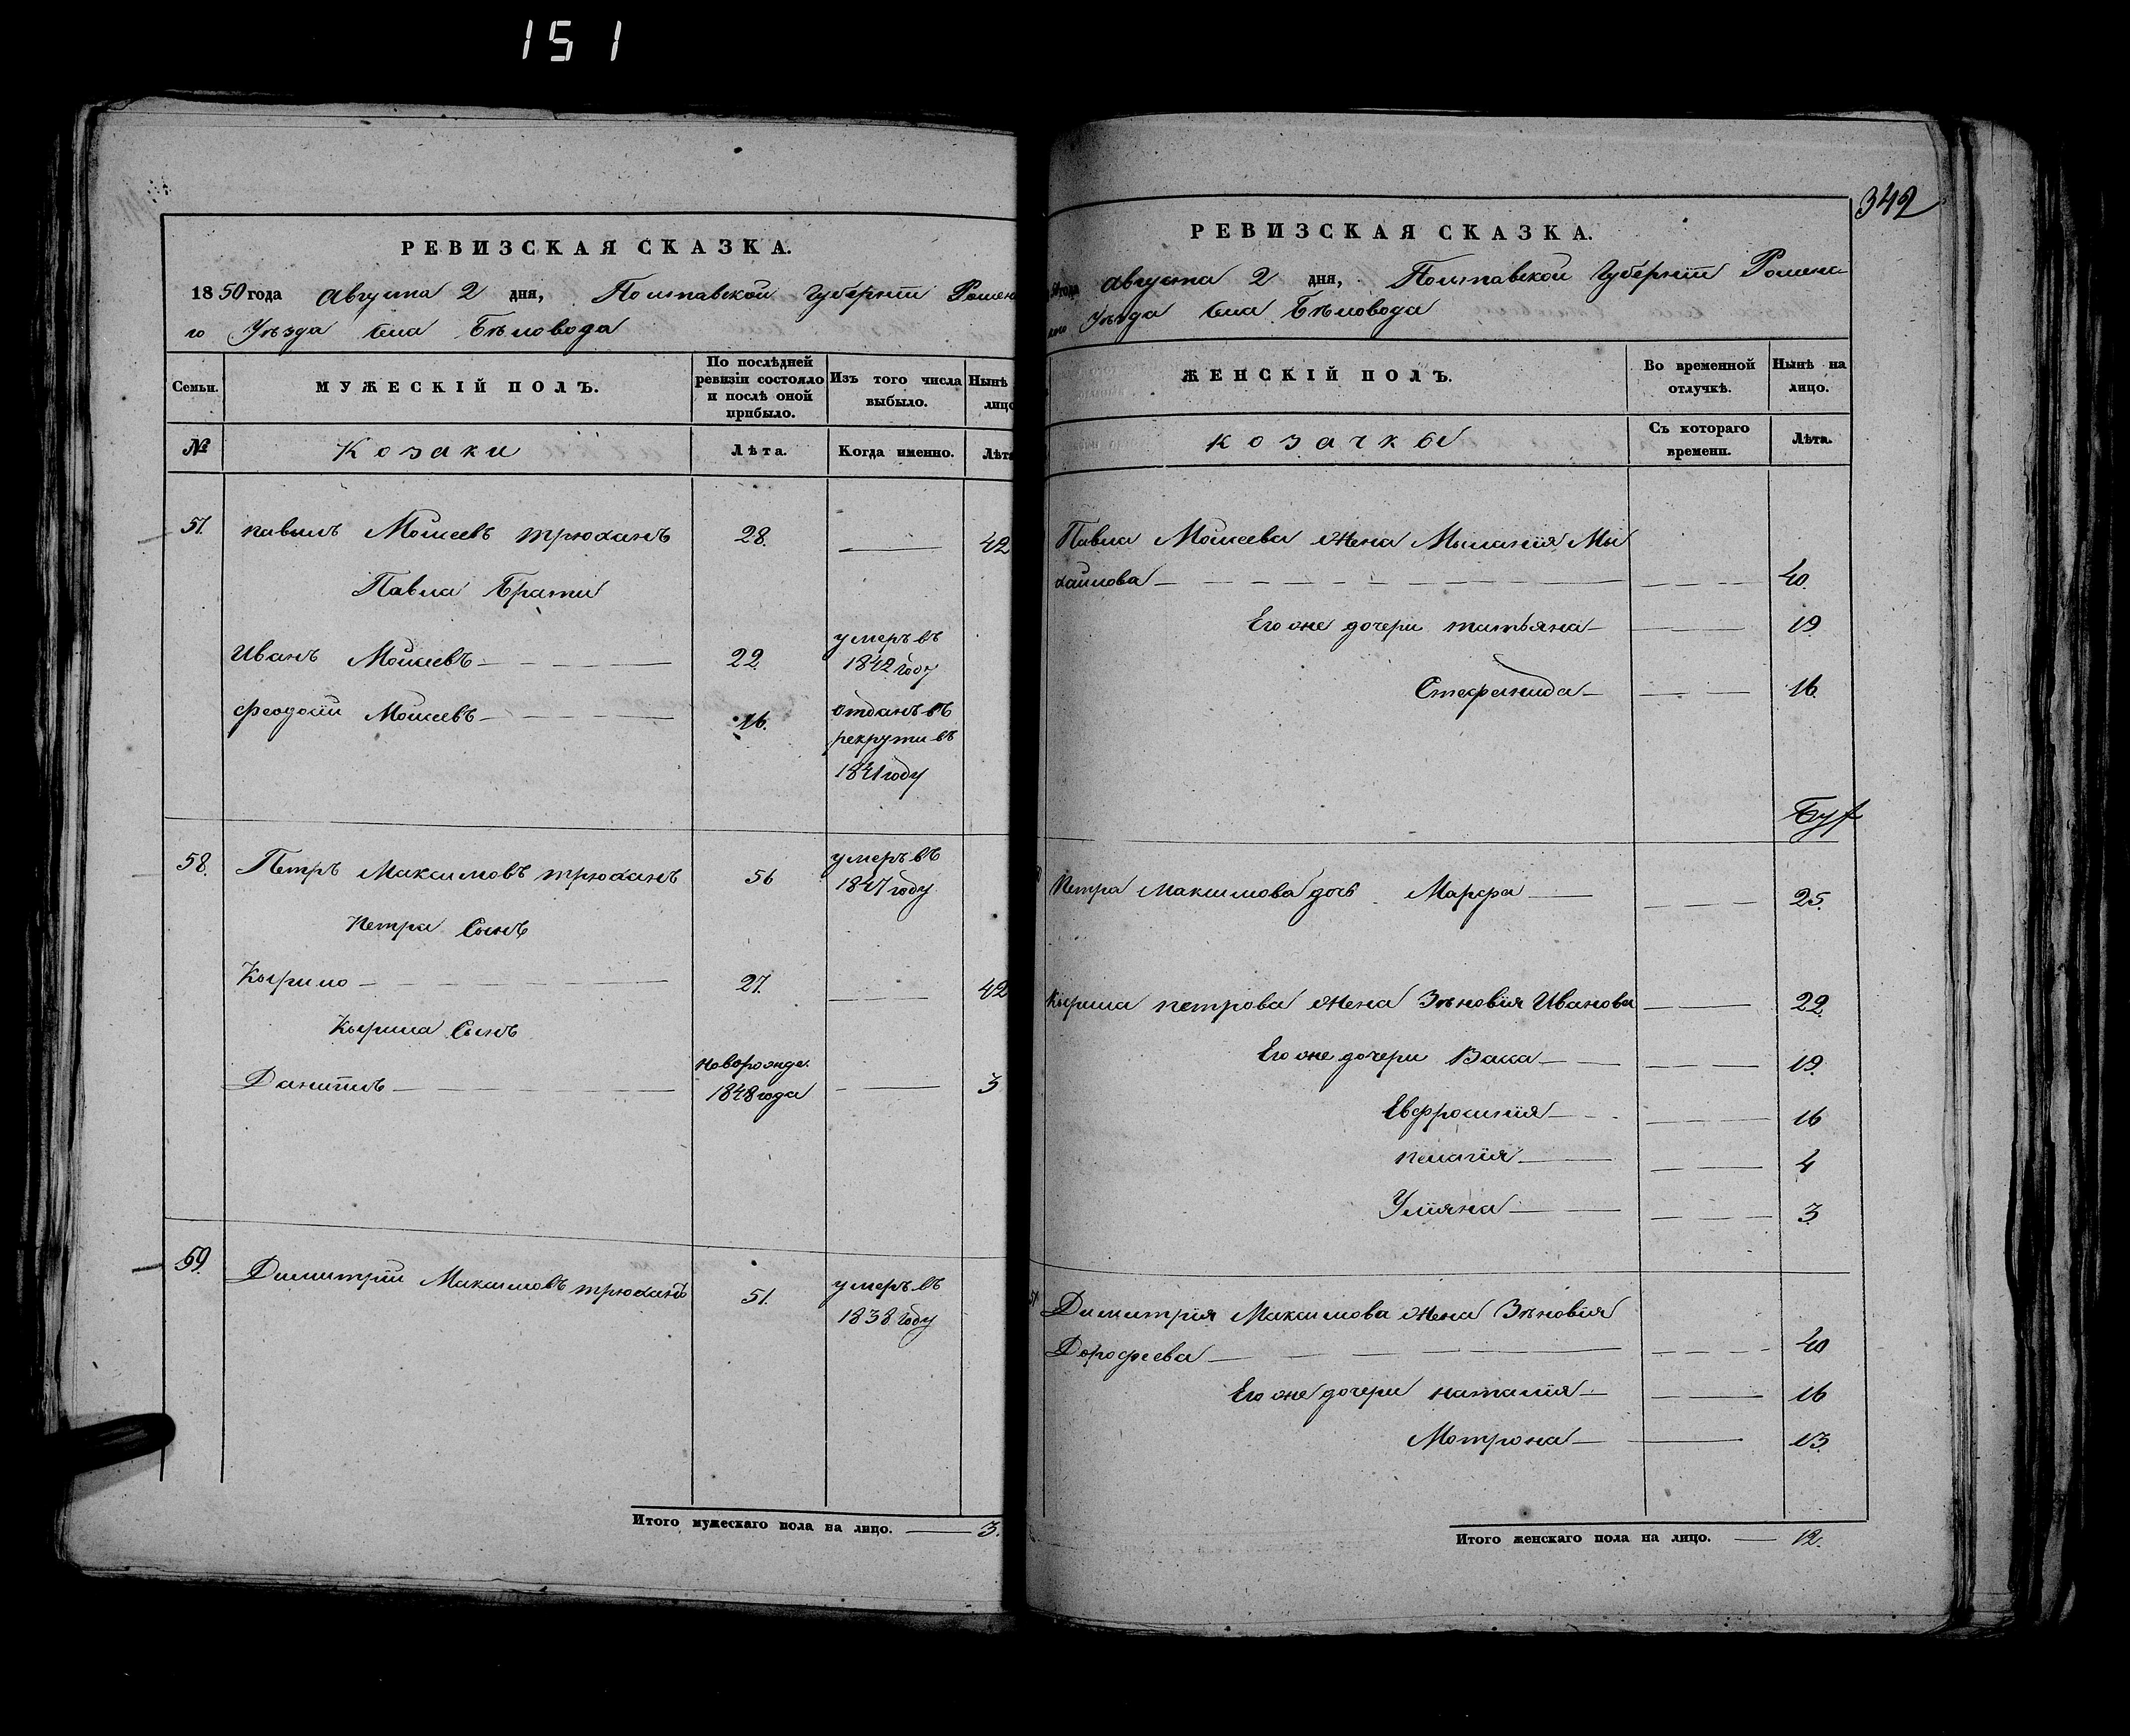 151
РЕВИЗСКАЯ СКАЗКА.
1850 года Августа 2 дня, Полтавской Губерніи Ромен
го Уѣзда Села Бѣловода
Семьи.
МУЖЕСКІЙ ПОЛЪ.
По послѣдней ревизіи состояло и послѣ оной прибыло.
Изъ того числа выбыло.
Нынѣ лицо
№
Козаки
Лѣта.
Когда именно.
Лѣта
57. павылъ Моисеевъ трюханъ 28. — 42
Павла Брати
Иванъ Моисеевъ — 22. умеръ въ 1842 году
Феодосій Моисеевъ — 16. отданъ въ рекрути въ 1841 году
58. Петръ Максимовъ трюханъ 56 умеръ въ 1847 году
Петра Сынъ
Кырило — 27. — 42
Кырила Сынъ
Даніилъ — новорожде. 1848 года — 3
59. Димитрій Максимовъ трюханъ 51. умеръ въ 1838 году
Итого мужескаго пола на лицо. — 3.
342
РЕВИЗСКАЯ СКАЗКА.
года Августа 2 дня, Полтавской Губерніи Роменс
Уѣзда Села Бѣловода
ЖЕНСКІЙ ПОЛЪ.
Во временной отлучкѣ.
Нынѣ на лицо.
козачкы
Съ котораго времени.
Лѣта.
Павла Моисеева жена Мыланія Мы
хайлова — 40.
Его же дочери татьяна — 19
Стефанида — 16.
Петра Максимова дочь Марфа — 25.
Кырила петрова жена Зѣновія Иванова — 22.
Его же дочери Васса — 19.
Евфросинія — 16
пелагія — 4
Уліяна — 3.
Димитрія Максимова жена Зѣновія
Дорофеева — 40
Его же дочери наталія — 16
Мотрона — 13.
Итого женскаго пола на лицо. — 12.